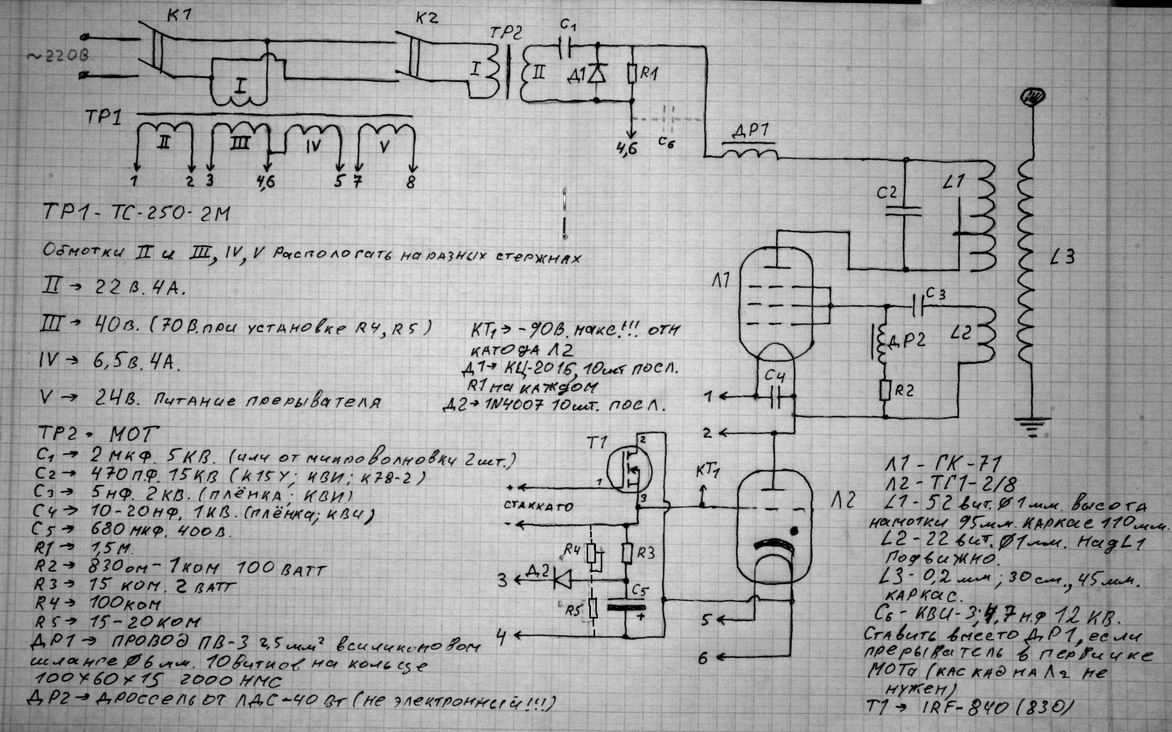 К1
К2
~220В
I
ТР2
I
II
С1
Д1
R1
4,6
С6
ДР1
С2
L1
L3
ТР1
II
III
IV
V
1 2 3 4,6 5 7 8
ТР1 - ТС-250-2М
Обмотки II и III, IV, V Распологать на разных стержнях
II → 22 В. 4А.
III → 40В. (70В. при установке R4, R5)
IV → 6,5В. 4А.
V → 24В. Питание прерывателя
КТ1 → -90В. макс!!! отн
катода Л2
Д1 → КЦ-201Б, 10шт посл.
R1 на каждом
Д2 → 1N4007 10шт. посл.
Л1
С3
ДР2
L2
R2
С4
1
2
ТР2 - МОТ
С1 → 2 мкф. 5 КВ. (или от микроволновки 2шт.)
С2 → 470 пф. 15 КВ (К15У; КВИ; К78-2)
С3 → 5 нф. 2 КВ. (плёнка; КВИ)
С4 → 10-20 нф, 1 КВ. (плёнка; КВИ)
С5 → 680 мкф. 400В.
R1 → 1,5 М.
R2 → 830 ом - 1 ком 100 ВАТТ
R3 → 15 ком. 2 ВАТТ
R4 → 100 ком
R5 → 15-20 ком
ДР1 → ПРОВОД ПВ-3 2,5 мм² в силиконовом
шланге Ø6 мм. 10 витков на кольце
100х60х15 2000 НМС
ДР2 → Дроссель от ЛДС-40 Вт (не электронный!!!)
Т1
2
1
3
+
СТАККАТО
-
R4
R3
3
Д2
С5
+
R5
4
КТ1
Л2
5
6
Л1 - ГК-71
Л2 - ТГ1-2/8
L1 - 52 вит. Ø1 мм. Высота
намотки 95 мм. каркас 110 мм.
L2 - 22 вит. Ø1 мм. Над L1
Подвижно.
L3 - 0,2 мм; 30 см., 45 мм.
каркас.
С6 - КВИ-3; 4,7 нф 12 КВ.
Ставить вместо ДР1, если
прерыватель в первичке
МОТа (каскад на Л2 не
нужен)
Т1 → IRF-840 (830)